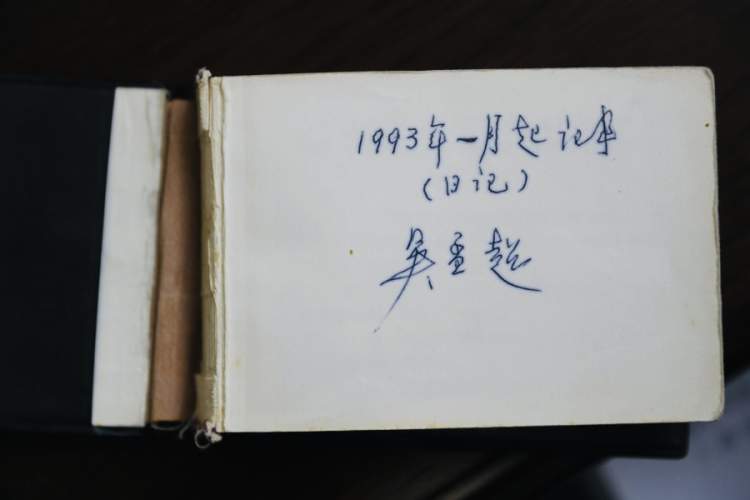 1993年一月起记事
(日记)
吴孟超